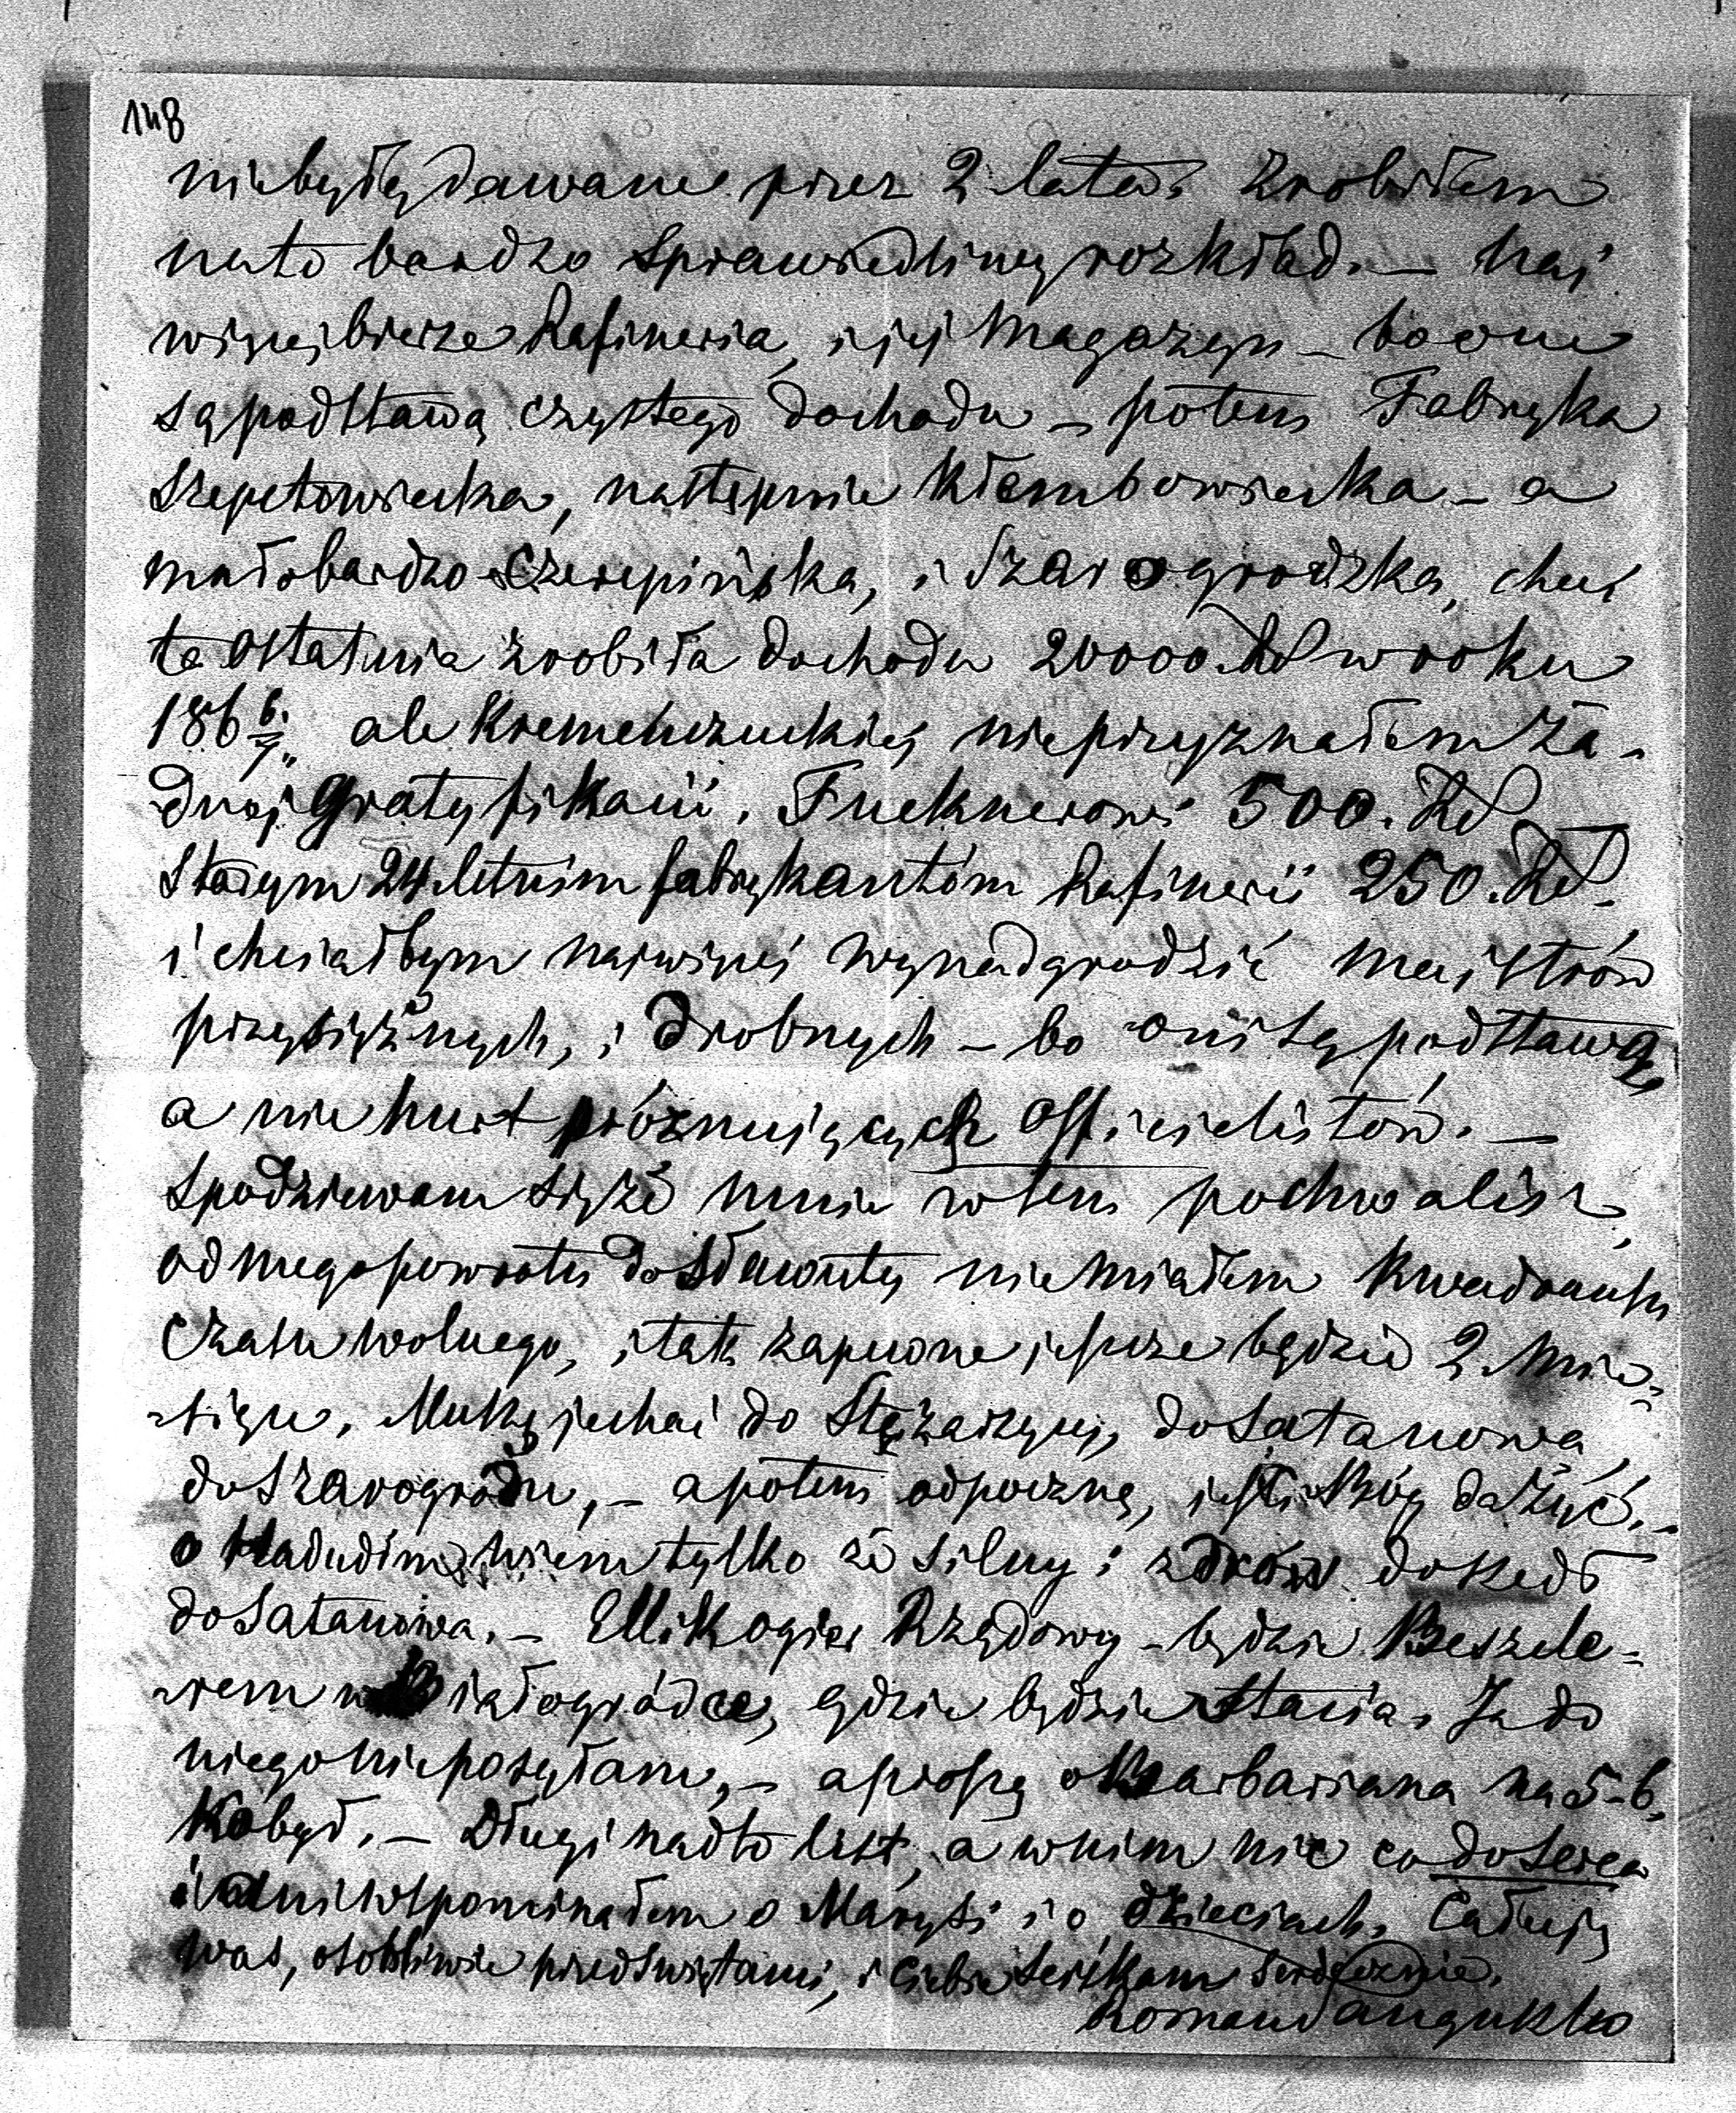 148
niebyły dawane przez 2 lata. Zrobiłem
na to bardzo sprawiedliwy rozkład. — naj
więcej bierze Rafineria, i jej Magazyn – bo one
są podstawą czystego dochodu – potem Fabryka
Szepetowiecka, następnie Kłembowiecka – a
mało bardzo Czerepińska, i Szarogrodzka, choć
ta ostatnia zrobiła dochodu 20000 Rs w roku
186 6/7 ale Kremenczuckiej nieprzyznałem ża-
dnej gratyfikacii. Fucknerowi 500. Rs
Starym 24 letnim fabrykantóm Rafinerii 250. Rs.
i chciałbym najwięcej wynadgrodzić majstrów
przysiężnych, i drobnych – bo oni są podstawą,
a nie hurt próżnujących officielistów. —
Spodziewam się że mnie w tem pochwalisz,
od mego powrotu do Sławuty nie miałem kwadransu
czasu wolnego, i tak zapewne jeszcze będzie 2 mie-
siące. Muszę jechać do Stężarzyc, do Satanowa,
do Szarogrodu, – a potem odpocznę, jeśli Bóg da żyć. –
o wiem tylko że silny i zdrów do Keds
do Satanowa. – Rządowy – będzie Beszele-
rem w Białogródce, gdzie będzie stacia. Ja do
niego nieposyłam, – a proszę o Barbariana na 5-6,
Kobył. – Długi nadto list, a w nim nic co do serca
i ani wspominałem o Marysi i o dzieciach. Całuję
was, osobliwie przed świętami, i Ciebie ściskam serdecznie.
Roman Sanguszko